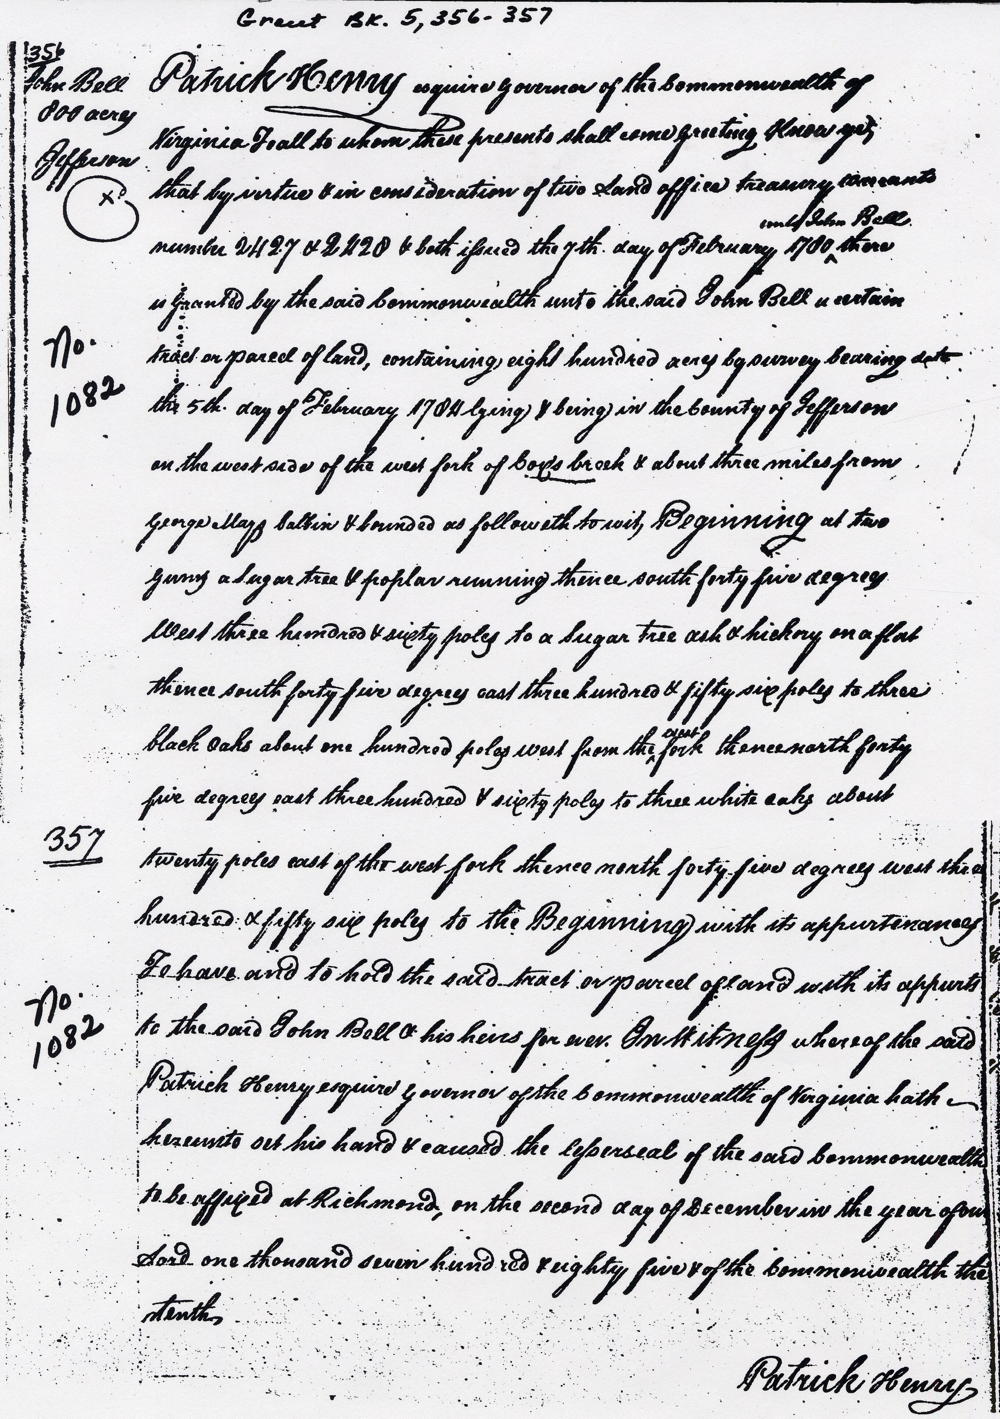 Grent BK. 5, 356-357
356
John Bell
800 acres
Jefferson
x
Patrick Henry esquire governor of the Commonwealth of
Virginia To all to whom these presents shall come greeting Know ye,
that by virtue & in consideration of two Land office treasury warrants
unto John Bell
number 2427 & 2428 & both issued the 7th. day of February 1780 ^ there
is granted by the said Commonwealth unto the said John Bell a certain
No.
1082
tract or parcel of land, containing eight hundred acres by survey bearing date
the 5th. day of February 1784 lying & being in the County of Jefferson
on the west side of the west fork of Coxs creek & about three miles from
George Mays cabbin & bounded as followeth to wit, Beginning at two
gums a Sugar tree & poplar running thence south forty five degrees
West three hundred & sixty poles to a Sugar tree ash & hickory on a flat
thence south forty five degrees east three hundred & fifty six poles to three
west
black Oaks about one hundred poles west from the ^ fork thence north forty
five degrees east three hundred & sixty poles to three white oaks about
357
twenty poles east of the west fork thence north forty five degrees west three
hundred & fifty six poles to the Beginning with its appurtenances
To have and to hold the said tract or parcel of land with its appurts
No.
1082
to the said John Bell & his heirs for ever. In Witness whereof the said
Patrick Henry esquire governor of the Commonwealth of Virginia hath
hereunto set his hand & caused the lesser seal of the said Commonwealth
to be affixed at Richmond, on the second day of December in the year of our
Lord one thousand seven hundred & eighty five & of the Commonwealth the
tenth
Patrick Henry